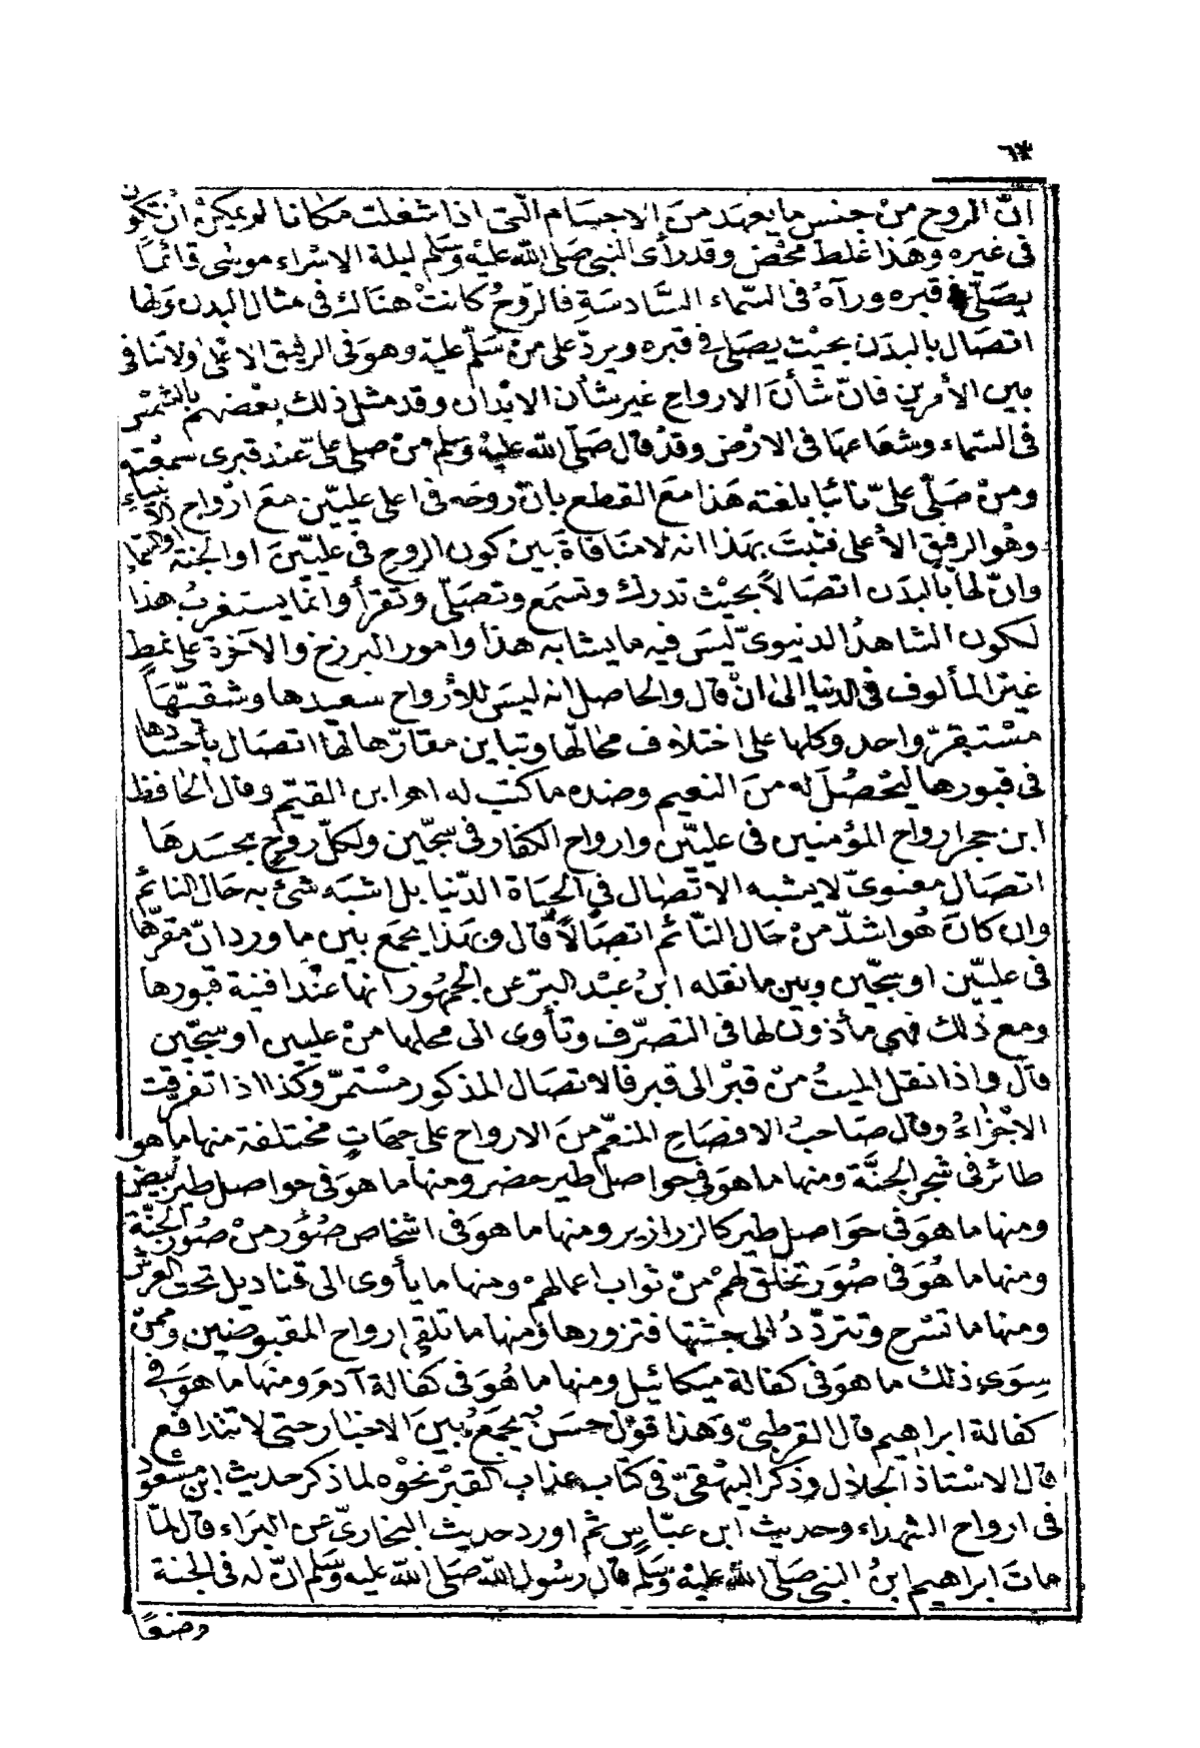 ٦٣
انّ الروح منْ جنس ما يعهَد منَ الاجسَام الّتى اذا شغلت مكانا لم يمكنْ انْ تكون
فى غيره وهَذا غلط محْض وقد رأى النبى صَلى اللّه عليْه وسَلم ليلة الاسْراء موسٰى قائمًا
يصَلّى فى قبره ورآهُ فى السّماء السّادسَةِ فالرّوحُ كانتْ هنَاك فى مثال البدن ولها
اتصَال بالبدَن بحيْث يصَلى فى قبره ويردّ على منْ سَلّم عليْه وهوَ فى الرفيق الاعْلى ولا تنافى
بين الأمرين فانّ شأنَ الارواح غير شأن الابْدان وقد مثل ذلك بعْضهم بالشمْس
فى السّماء وشعَاعها فى الارْض وقدْ قال صَلّى اللّه عليْه وسَلم منْ صلى علىّ عند قبرى سمعْته
ومنْ صَلّى علىّ نائيًا بلغته هَذا مَع القطع بانّ روحَه فى اعلى عليّين معَ ارْواح الانبياء
وهُو الرفيق الأعلى فثبتَ بهَذا انه لا منَافاةَ بيْن كون الروح فى عليّينَ او الجنة او السّماء
وانّ لها بالبدَن اتصَالاً بحيْث تدرك وتسمَع وتصَلّى وتقرَأ وانّما يستغربُ هذا
لكون الشاهدُ الدنيوىّ ليسَ فيه ما يشابه هذا وامور البرزخ والآخرة على نمطٍ
غيْر المألوف فى الدنيا إلى انْ قال والحاصل انه ليسَ للأرواح سعيدها وشقيّهَا
مسْتقرّ واحد وكلها على اختلاف محالّها وتباين مقارّها لها اتصَال بأجْسادها
فى قبورها ليحْصُلَ له منَ النعيم وضده ما كتبَ له اهـ ابن القيّم وقال الحافظ
ابن حجر ارواح المؤمنين فى عليّين وارواح الكفار فى سجّين ولكلّ روحٍ بجسَدهَا
اتصَال معنوىّ لا يشبه الاتّصال فى الحيَاة الدّنيا بل اشبَه شئ به حَال النائم
وان كانَ هُو اشدّ منْ حَال النّائم اتصَالاً قال وبهَذا يجمَع بين ما ورد انّ مقرّها
فى عليّين او سجّين وبين ما نقله ابنُ عبْد البرّ عن الجمْهُور انها عنْد افنية قبورها
ومع ذلك فهى مأذون لها فى التصَرّف وتأوى الى محلها منْ عليين او سجّين
قال واذا نقل الميتُ منْ قبْر الى قبر فالاتصَال المذكور مسْتمرّ وكذا اذا تفرّقت
الاجْزاءُ وقال صَاحبُ الافصَاح المنعّم منَ الارواح على جهَاتٍ مختلفة منها ما هو
طائر فى شجر الجنَّة ومنها ما هوَ فى حواصل طير خضر ومنها ما هوَ فى حواصل طير بيض
ومنها ما هوَ فى حَواصل طير كالزرازير ومنها ما هوَ فى اشخاص صُوَر منْ صُوَر الجنَّة
ومنها ما هُوَ فى صُوَر تخلق لهمْ منْ ثواب اعمالهمْ ومنها ما يأوى الى قناديل تحت العرش
ومنها ما تسْرح وتتردّدُ الى جثتها فتزورها ومنها ما تلقى ارواح المقبوضين وممنْ
سِوَى ذلك ما هوَ فى كفالة ميكائيل ومنها ما هُوَ فى كفالة آدمَ ومنها ما هوَ فى
كفالة ابراهيم قال القرطبىّ وَهذا قوْل حسَنٌ يجمَعُ بينَ الاخبار حتى لا تتدافع
قال الاسْتاذ الجلال وذكر البيهقىّ فى كتاب عذاب القبرْ نحْوَه لما ذكر حديث ابن مسْعود
فى ارواح الشهداء وحديث ابن عبّاسٍ ثم اورد حديث البخارىّ عن البَراء قال لمّا
ماتَ ابراهيم ابنُ النبى صَلى اللّه عليْه وسَلم قال رسُول اللّه صَلى اللّه عليه وسَلم انّ له فى الجنة
مرضعًا